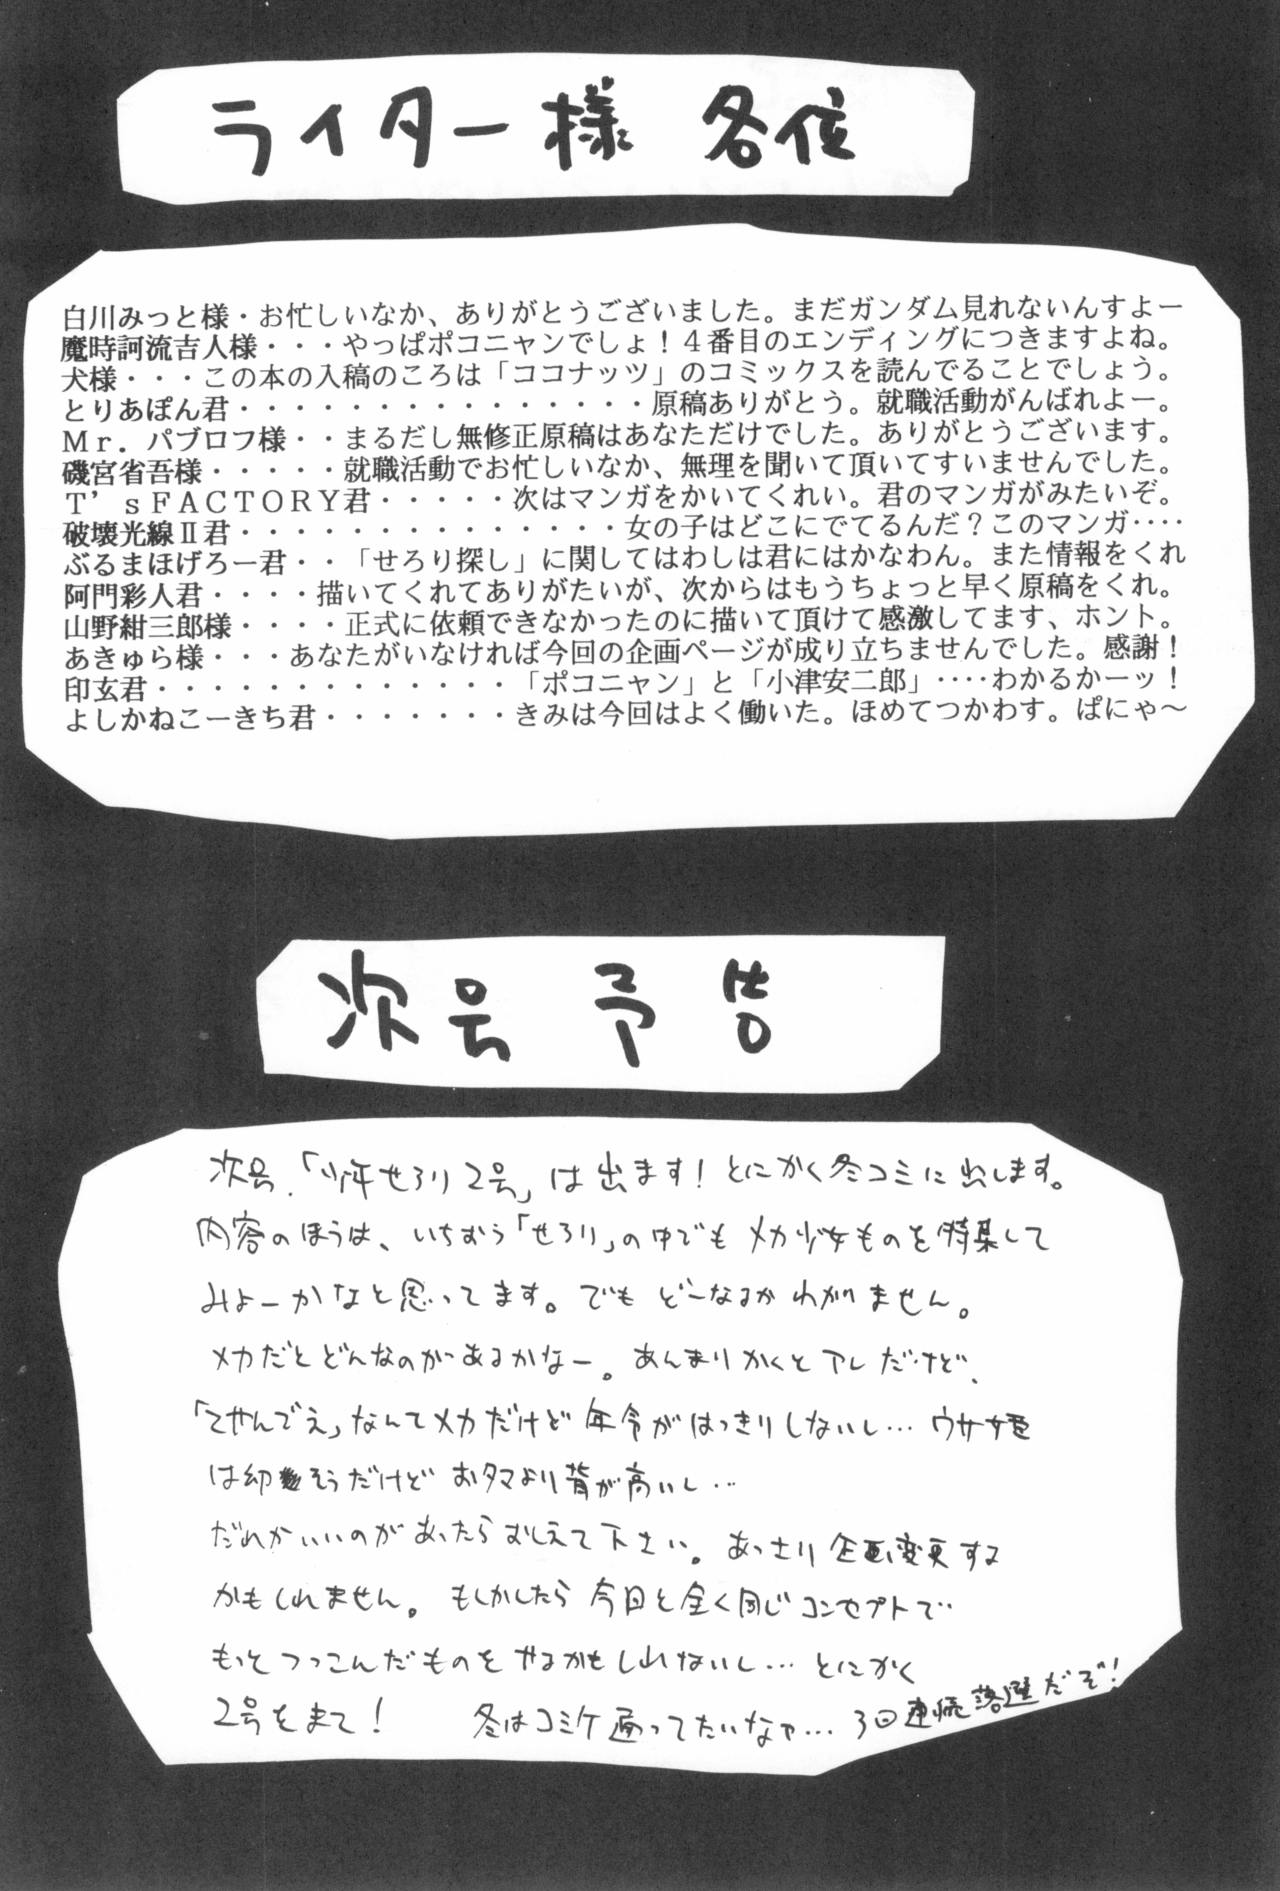 ライター様 各位
白川みっと様・お忙しいなか、ありがとうございました。まだガンダム見れないんすよー
魔時訶流吉人様・・・やっぱポコニャンでしょ！４番目のエンディングにつきますよね。
犬様・・・この本の入稿のころは「ココナッツ」のコミックスを読んでることでしょう。
とりあぽん君・・・・・・・・・・・・・・・原稿ありがとう。就職活動がんばれよー。
Ｍｒ．パブロフ様・・まるだし無修正原稿はあなただけでした。ありがとうございます。
磯宮省吾様・・・・・就職活動でお忙しいなか、無理を聞いて頂いてすいませんでした。
Ｔ’ｓＦＡＣＴＯＲＹ君・・・・・次はマンガをかいてくれい。君のマンガがみたいぞ。
破壊光線Ⅱ君・・・・・・・・・・・・・・女の子はどこにでてるんだ？このマンガ‥‥
ぶるまほげろー君・・「せろり探し」に関してはわしは君にはかなわん。また情報をくれ
阿門彩人君・・・・描いてくれてありがたいが、次からはもうちょっと早く原稿をくれ。
山野紺三郎様・・・・正式に依頼できなかったのに描いて頂けて感激してます、ホント。
あきゅら様・・・あなたがいなければ今回の企画ページが成り立ちませんでした。感謝！
印玄君・・・・・・・・・・・・・・「ポコニャン」と「小津安二郎」‥‥わかるかーッ！
よしかねこーきち君・・・・・・・きみは今回はよく働いた。ほめてつかわす。ぱにゃ～
次号 予告
次号、「少年せろり２号」は出ます！とにかく冬コミに出します。
内容のほうは、いちおう「せろり」の中でもメカ少女ものを特集して
みよーかなと思ってます。でもどーなるかわかりません。
メカだとどんなのがあるかなー。あんまりかくとアレだけど、
「てやんでえ」なんてメカだけど年令がはっきりしないし…ウサ姫
は幼そうだけどおタマより背が高いし…
だれかいいのがあったらおしえて下さい。あっさり企画変更する
かもしれません。もしかしたら今回と全く同じコンセプトで
もっとつっこんだものをやるかもしれないし…とにかく
２号をまて！ 冬はコミケ通ってたいなァ…３回連続落選だぞ！